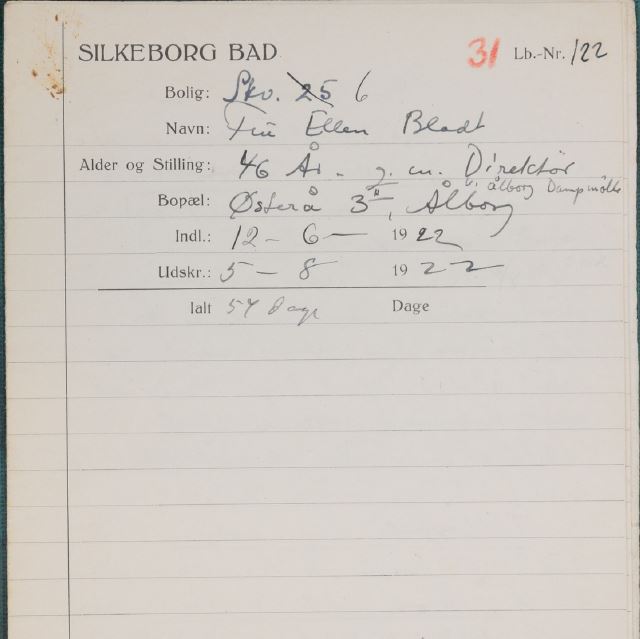 SILKEBORG BAD 31 Lb.-Nr. 122
Bolig: Skv. 25 6
Navn: Fru Ellen Bladt
Alder og Stilling: 46 År. g. m. Direktør
i Ålborg Dampmølle
Bopæl: Østerå 3 II, Ålborg
Indl.: 12 - 6 - 1922
Udskr.: 5 - 8 1922
Ialt 54 Dage Dage